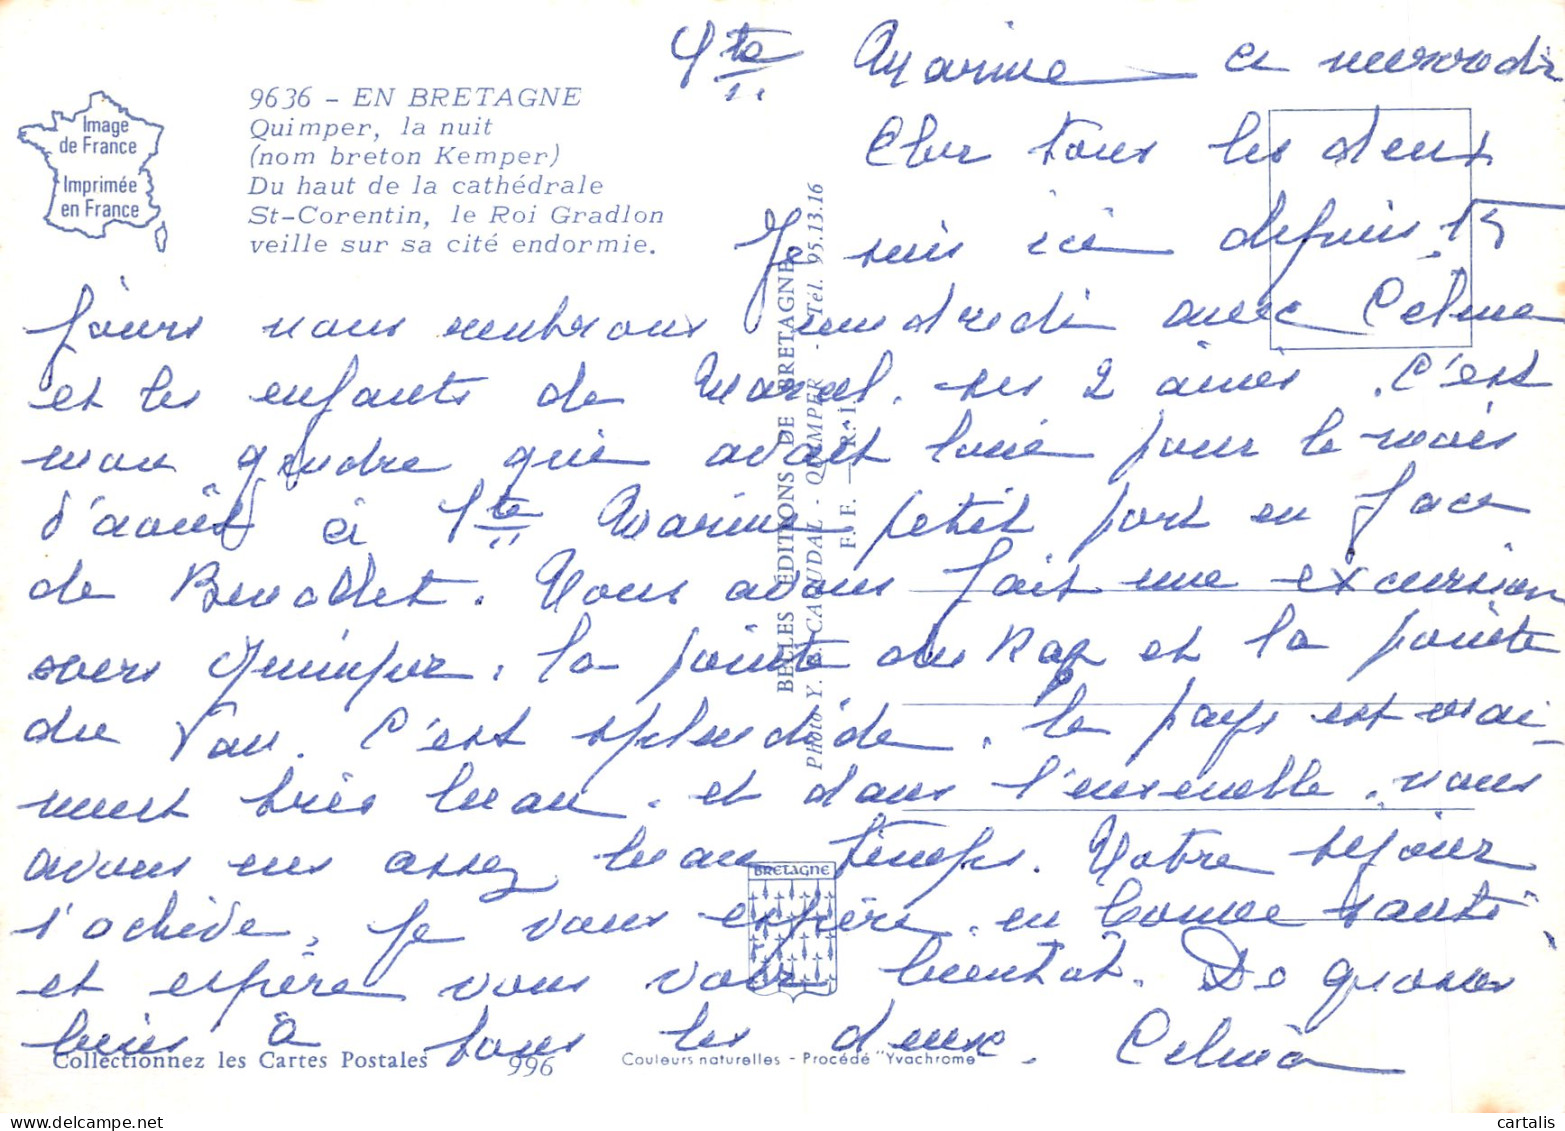 Ste Marine ce mercredi
Image
de France
Imprimée
en France
9636 - EN BRETAGNE
Quimper, la nuit
(nom breton Kemper)
Du haut de la cathédrale
St-Corentin, le Roi Gradlon
veille sur sa cité endormie.
Cher tous les deux
Je suis ici depuis 15
jours nous rentrons vendredi avec
et les enfants de Marcel. ses 2 ainés. C'est
mon gendre qui avait loué pour le mois
d'août à Ste Marine petit port en face
de Benodet. Nous avons fait une excursion
vers Quimper, la pointe du Raz et la pointe
du Van. C'est splendide. le pays est vrai-
ment très beau. et dans l'ensemble. nous
avons eus assez beau temps. Votre séjour
s'achève, je vous espère en bonne santé
et espère vous voir bientôt. De grosses
bises à tous les deux.
BELLES ÉDITIONS DE BRETAGNE
Photo Y. R. CAOUDAL - QUIMPER - Tél. 95.13.16
F. F. - R. I
BRETAGNE
Collectionnez les Cartes Postales
996
Couleurs naturelles - Procédé "Yvachrome"
delcampe.net
cartalis